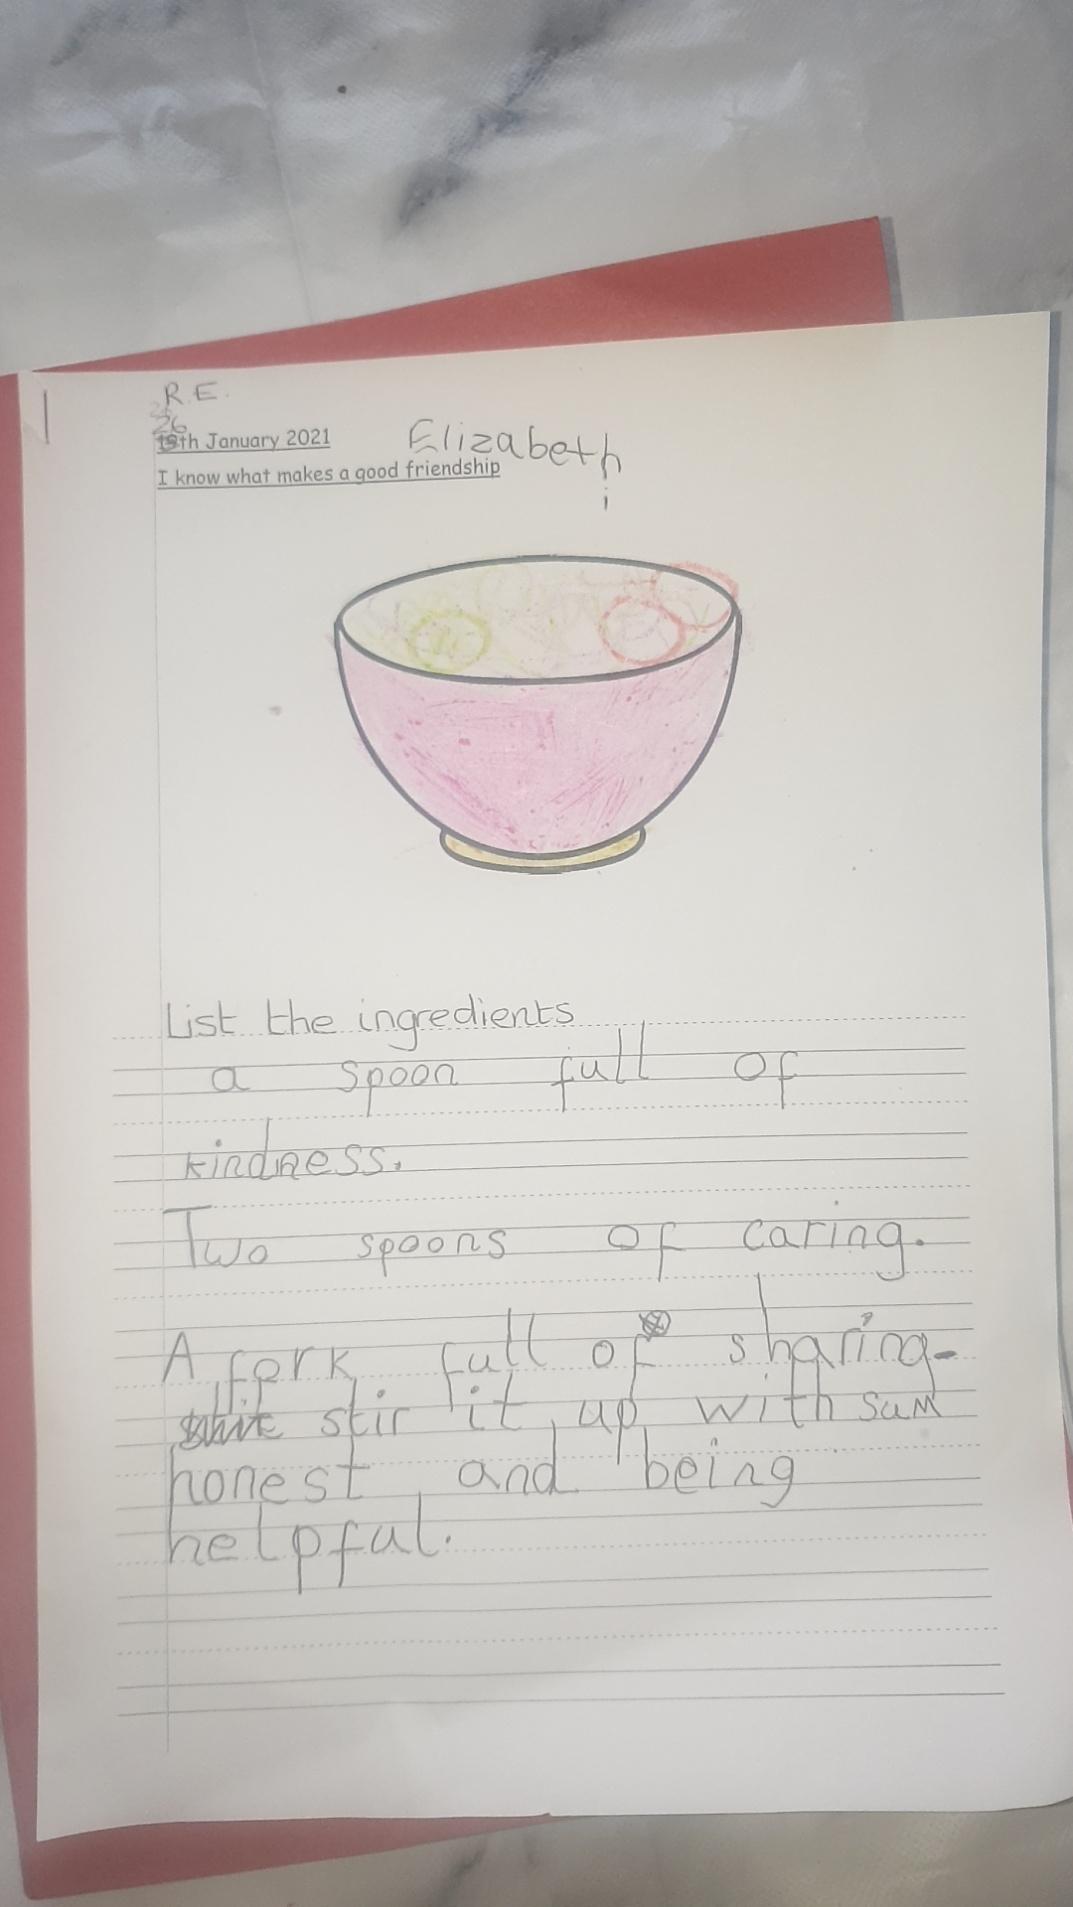 R.E.
26
18th January 2021
Elizabeth
I know what makes a good friendship
List the ingredients
a spoon full of
kindness.
Two spoons of caring.
A fork full of sharing.
stir it up with sum
honest and being
helpful.